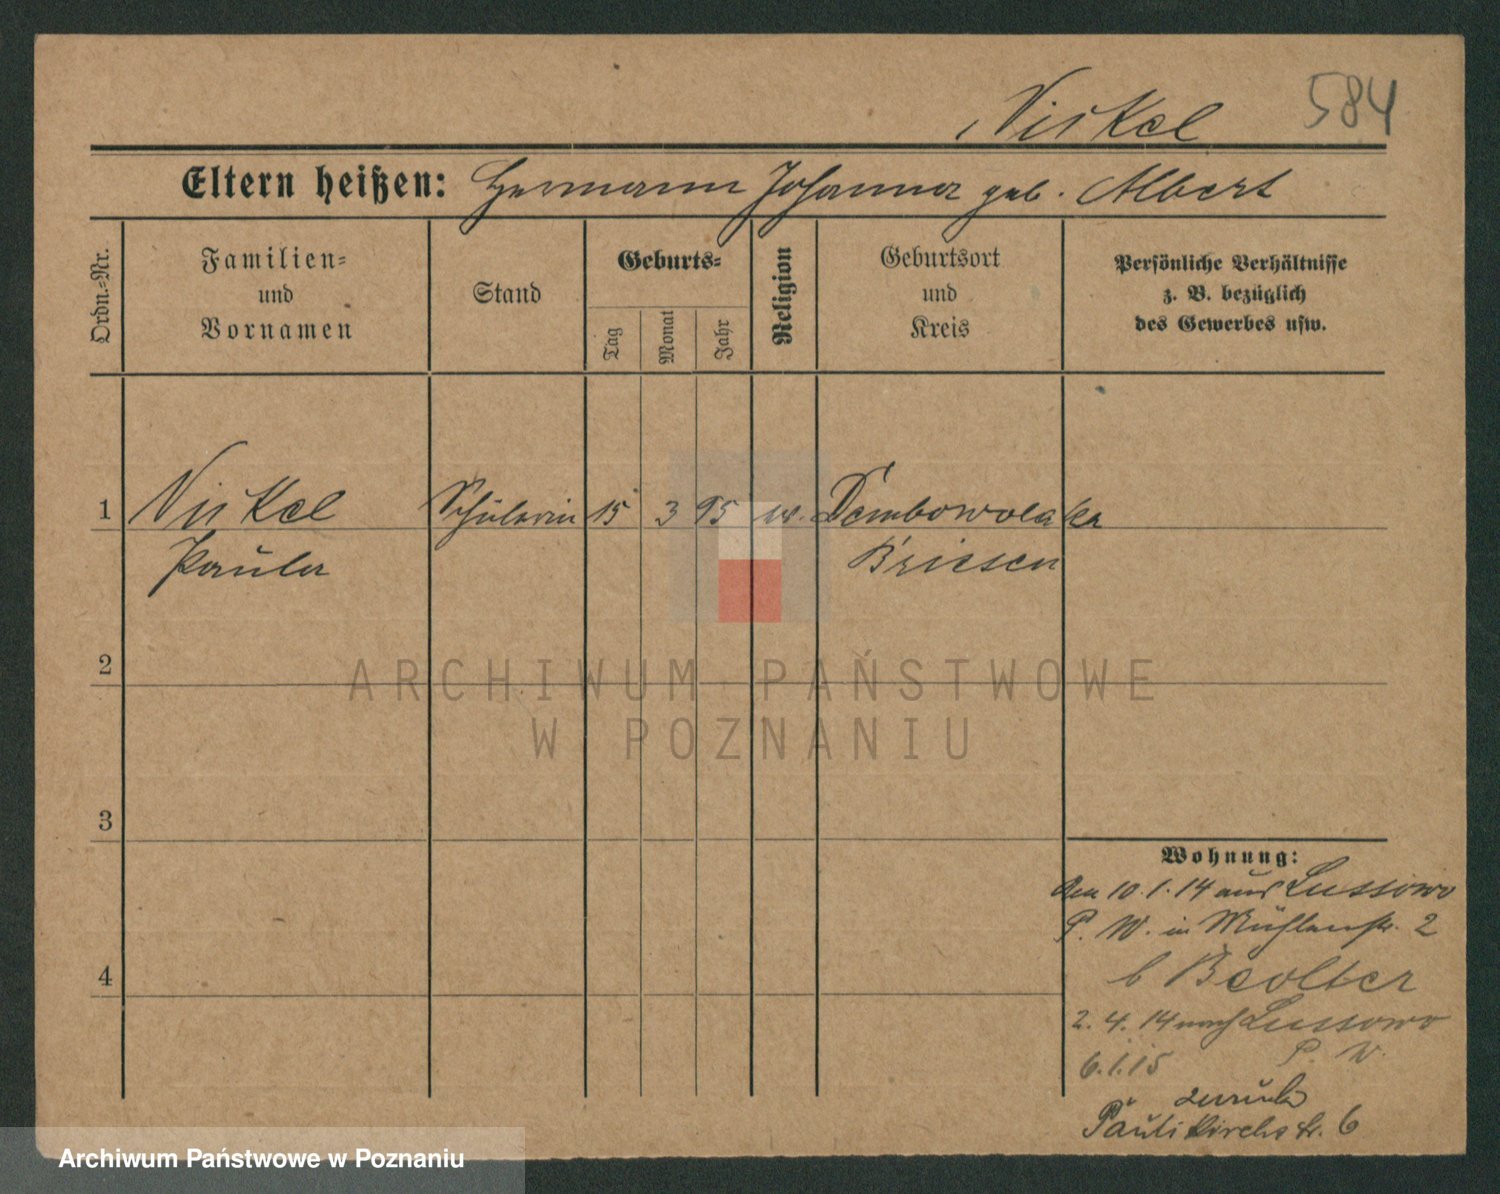 Nickel 584
Eltern heißen: Hermann Johanna geb. Albert
Ordn.-Nr.
Familien-
und
Vornamen
Stand
Geburts-
Tag
Monat
Jahr
Religion
Geburtsort
und
Kreis
Persönliche Verhältnisse
z. B. bezüglich
des Gewerbes usw.
1 Nickel Schülerin 15 3 95 ev. Dembowolonka
Paula Briesen
2
ARCHIWUM PAŃSTWOWE
W POZNANIU
3
Wohnung:
den 10.1.14 aus Lussowo
P. W. in Mühlenstr. 2
b
4
2.4.14 nach Lussowo
P. W.
6.1.15
zurück
Paulikirchstr. 6
Archiwum Państwowe w Poznaniu